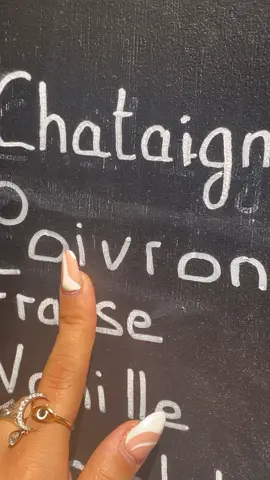 Chataign
Poivron
Fraise
Vanille